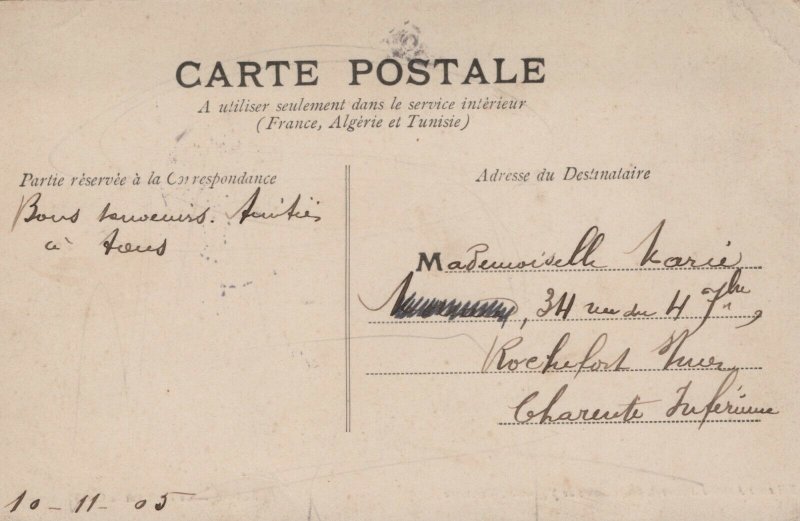 CARTE POSTALE
A utiliser seulement dans le service intérieur
(France, Algérie et Tunisie)
Partie réservée à la Correspondance
Bons souvenirs. Amitiés
à tous
10 - 11 - 05
Adresse du Destinataire
Mademoiselle Marie
, 34 rue du 4 7bre,
Rochefort Mer
Charente Inférieure